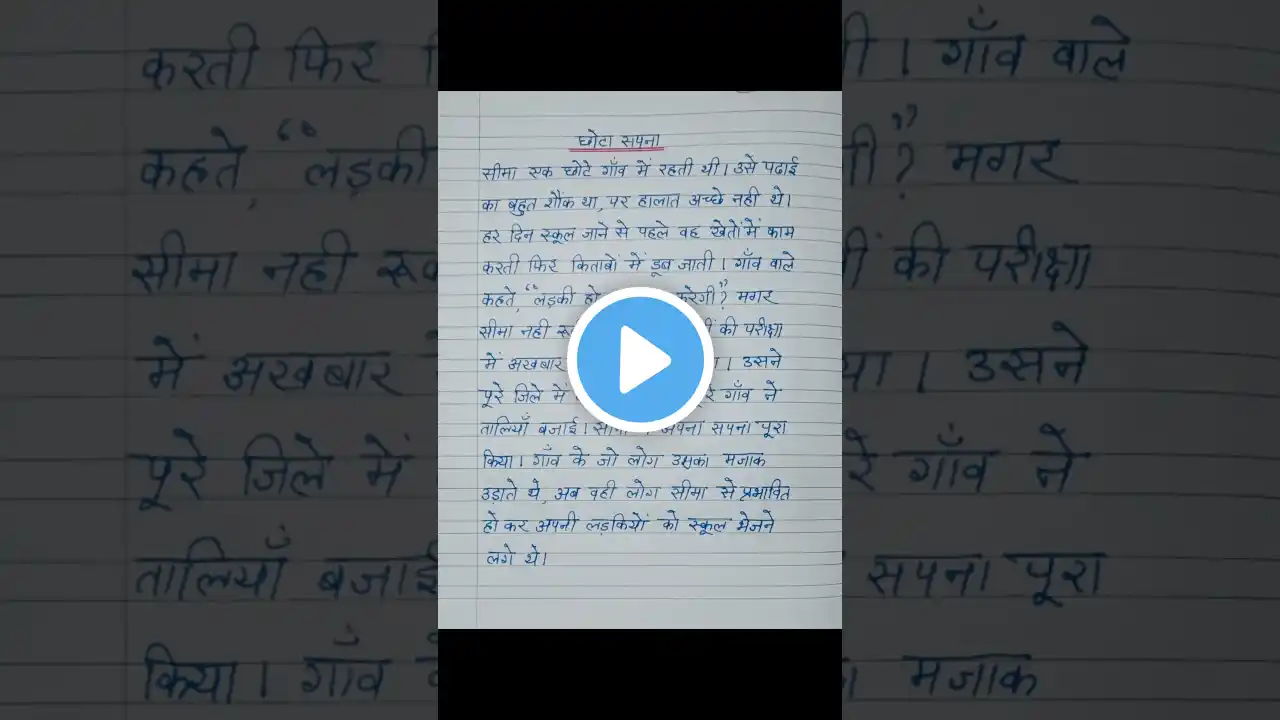 छोटा सपना
सीमा एक छोटे गाँव में रहती थी। उसे पढाई
का बहुत शौंक था, पर हालात अच्छे नही थे।
हर दिन स्कूल जाने से पहले वह खेतों में काम
करती फिर किताबों में डूब जाती। गाँव वाले
कहते, “लड़की हो करेगी”? मगर
सीमा नही की परीक्षा
में अखबार उसने
पूरे जिले में गाँव ने
तालियाँ बजाई। अपना सपना पूरा
किया। गाँव के जो लोग उसका मजाक
उडाते थे, अब वही लोग सीमा से प्रभावित
हो कर अपनी लड़कियों को स्कूल भेजने
लगे थे।